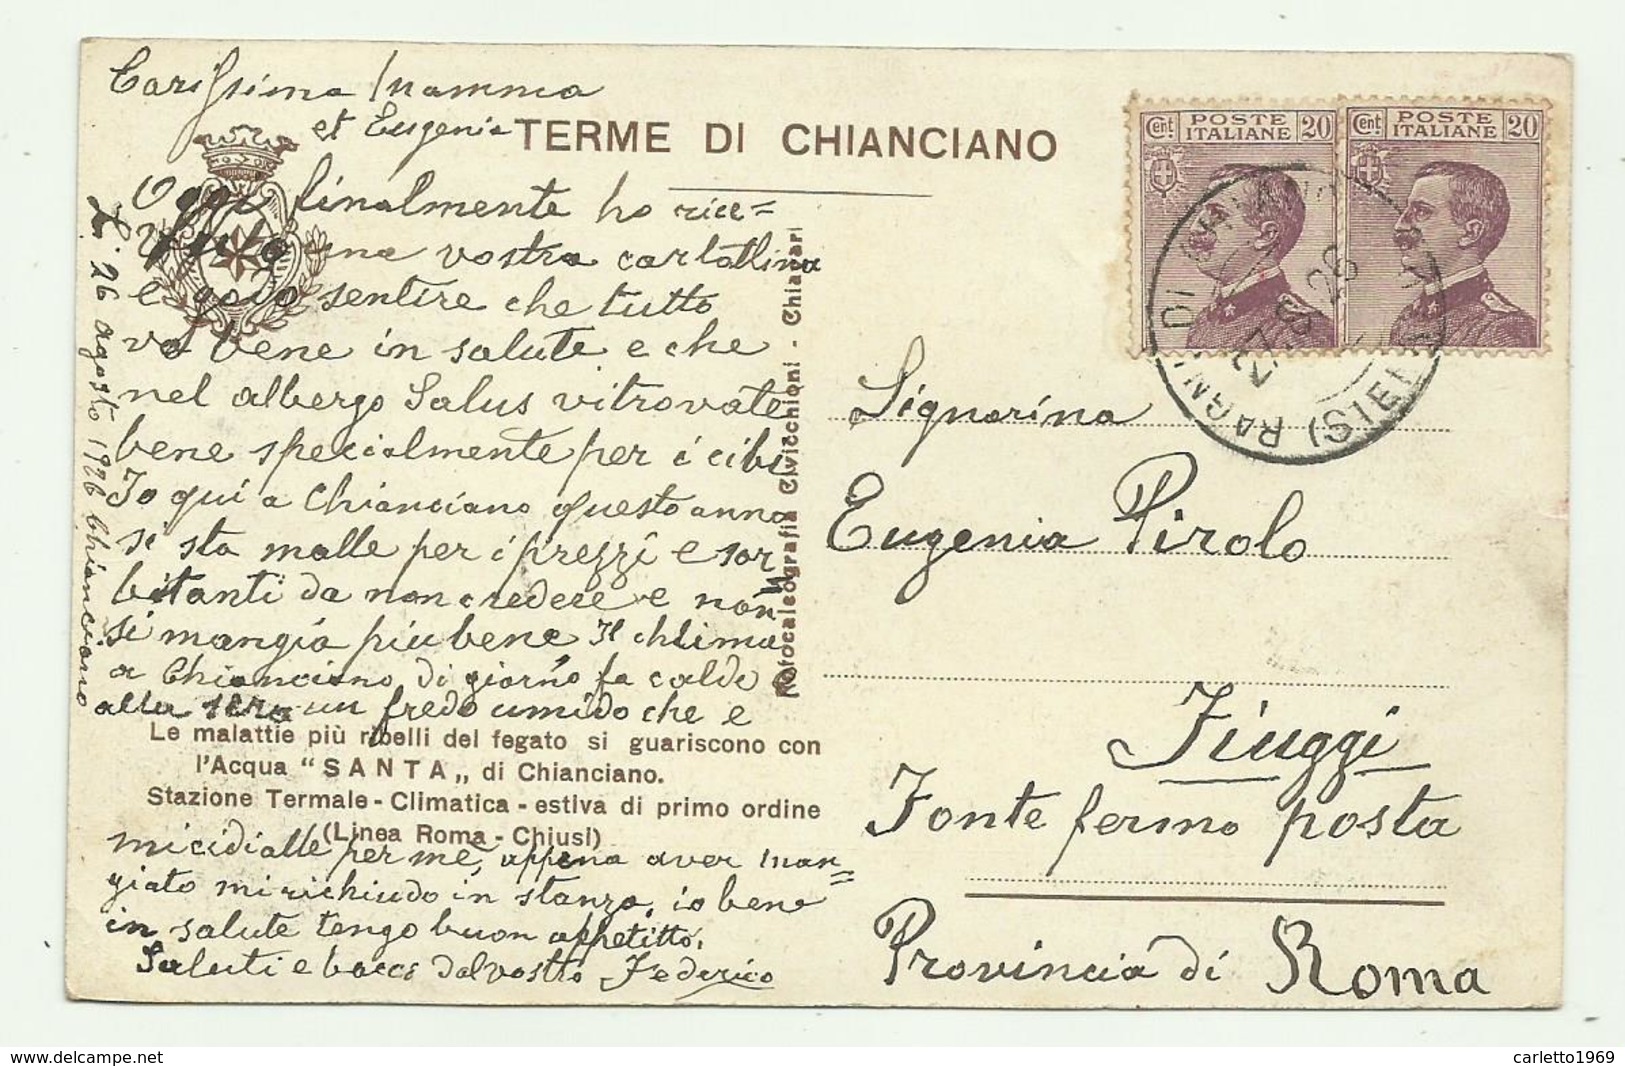 Carissima Mamma
et Eugenia
TERME DI CHIANCIANO
Oggi finalmente ho rice=
vuto una vostra cartollina
e godo sentire che tutto
va bene in salute e che
nel albergo Salus vitrovate
bene specialmente per i cibi
Io qui a Chianciano questo anno
si sta malle per i prezzi e sor
bitanti da non credere e non
si mangia piu bene Il chlima
a Chianciano di giorno fa calde
alla sera un fredo umido che e
Le malattie più ribelli del fegato si guariscono con
l'Acqua “SANTA„ di Chianciano.
Stazione Termale - Climatica - estiva di primo ordine
(Linea Roma - Chiusi)
micidialle per me, appena aver man=
giato mi richiudo in stanza, io bene
in salute tengo buon appetitto.
Saluti e bacci dal vostro Federico
Li 26 agosto 1926 Chianciano
Fotocalcografia Civicchioni - Chiavari
Cent. POSTE ITALIANE 20
Cent. POSTE ITALIANE 20
BAGNI DI CHIANCIANO (SIENA)
27.8.26
Signorina
Eugenia Pirolo
Fiuggi
Fonte fermo posta
Provincia di Roma
www.delcampe.net
carletto1969